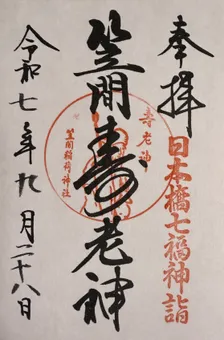 奉拝
日本橋七福神詣
寿老神
笠間壽老神
笠間稲荷神社
令和七年九月二十八日